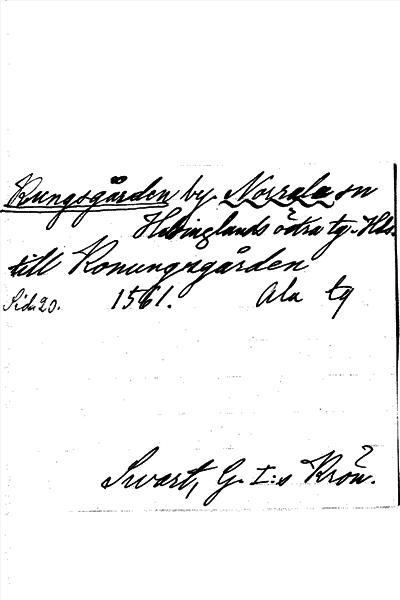 Kungsgården by Norrala sn
Helsinglands östra tg. Hds.
till Konungxgården
Sid. 20. 1561. Ala tg
Swart, G. I:s Krön.